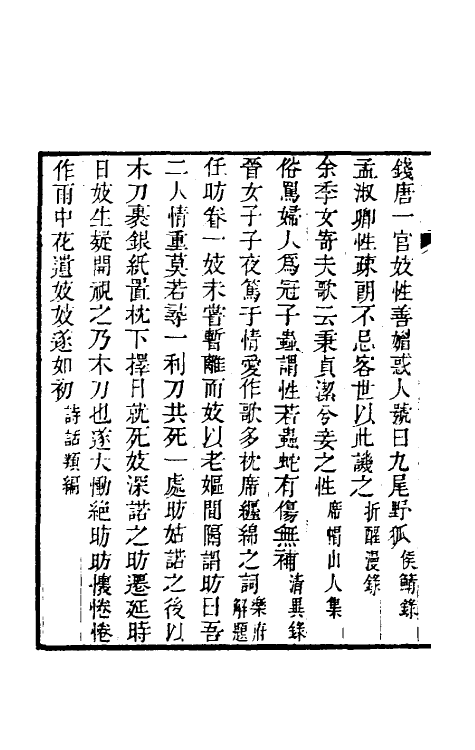 錢唐一官妓性善媚惑人號曰九尾野狐侯鯖錄
孟淑卿性疎朗不忌客世以此譏之折醒漫錄
余季女寄夫歌云秉貞潔兮妾之性席帽山人集
俗罵婦人爲冠子蟲謂性若蟲蛇有傷無補清異錄
晉女子子夜篤于情愛作歌多枕席纏綿之詞樂府解題
任昉眷一妓未嘗暫離而妓以老嫗間隔謂昉曰吾
二人情重莫若尋一利刀共死一處昉姑諾之後以
木刀裹銀紙置枕下擇日就死妓深諾之昉遷延時
日妓生疑開視之乃木刀也遂大慟絕昉昉懐惓惓
作雨中花遺妓妓遂如初詩話類編